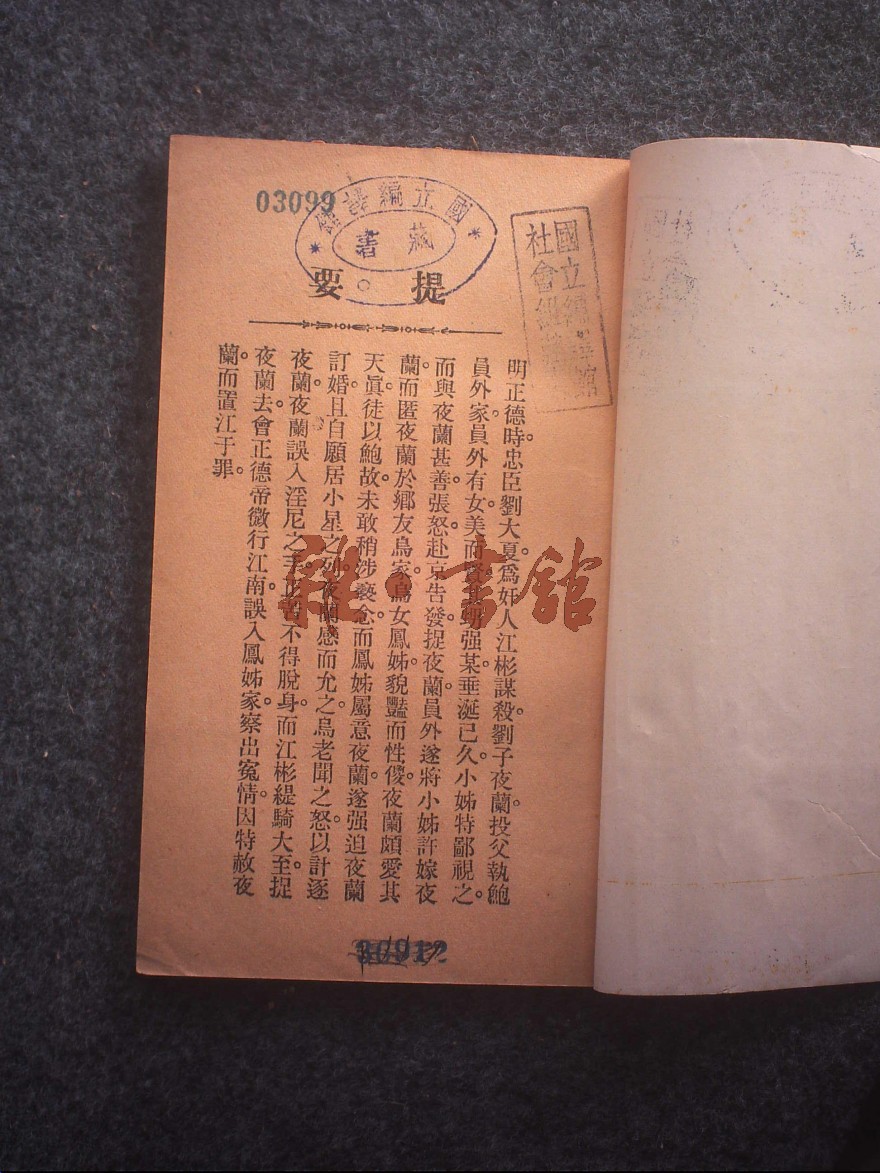 03099
國立編譯館
藏書
國立編譯館
社會組
提要
明正德時。忠臣劉大夏。爲奸人江彬謀殺。劉子夜蘭。投父執鮑
員外家。員外有女。美而賢。其甥强某。垂涎已久。小姊特鄙視之。
而與夜蘭甚善。張怒。赴京告發。捉夜蘭。員外遂將小姊許嫁夜
蘭。而匿夜蘭於鄉友烏家。烏女鳳姊。貌豔而性傻。夜蘭頗愛其
天眞。徒以鮑故。未敢稍涉褻念。而鳳姊屬意夜蘭。遂强迫夜蘭
訂婚。且自願居小星之列。夜蘭感而允之。烏老聞之怒。以計逐
夜蘭。夜蘭誤入淫尼之手。苦不得脫身。而江彬緹騎大至。捉
夜蘭去。會正德帝微行江南。誤入鳳姊家。察出寃情。因特赦夜
蘭。而置江于罪。
雜·書館